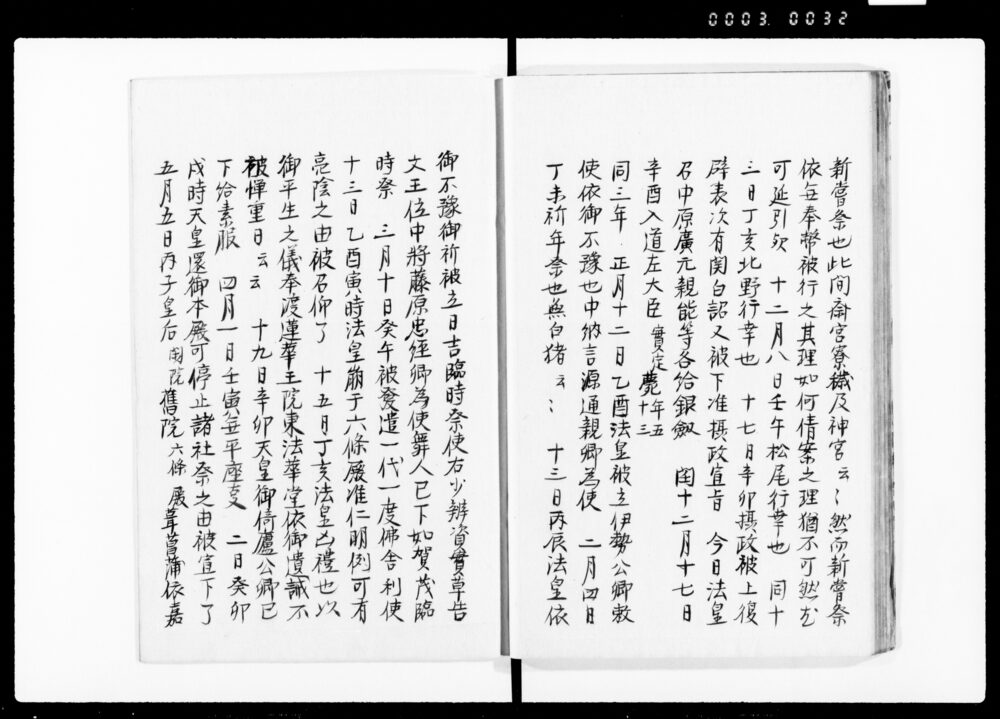 0003. 0032
新嘗祭也此間斎宮寮穢及神宮云〻然而新嘗祭
依毎奉幣被行之其理如何倩案之理猶不可然尤
可延引欤　十二月八日壬午松尾行幸也　同十
三日丁亥北野行幸也　十七日辛卯摂政被上復
辟表次有関白詔又被下准摂政宣旨　今日法皇
召中原廣元親能等各給銀劔　閏十二月十七日
辛酉入道左大臣實定薨年五十三
同三年　正月十二日乙酉法皇被立伊勢公卿敕
使依御不豫也中納言源通親卿為使　二月四日
丁未祈年祭也無白猪云〻　十三日丙辰法皇依
御不豫御祈被立日吉臨時祭使右少辨資實草告
文王位中將藤原忠經卿為使舞人已下如賀茂臨
時祭　三月十日癸午被發遣一代一度佛舎利使
十三日乙酉寅時法皇崩于六條殿准仁明例可有
亮陰之由被召仰了　十五月丁亥法皇凶禮也以
御平生之儀奉渡蓮華王院東法華堂依御遺誡不
被憚重日云云　十九日辛卯天皇御倚廬公卿已
下給素服　四月一日壬寅無平座㕝　二日癸卯
戌時天皇還御本殿可停止諸社祭之由被宣下了
五月五日丙子皇后閑院舊院六條殿葺菖蒲依嘉